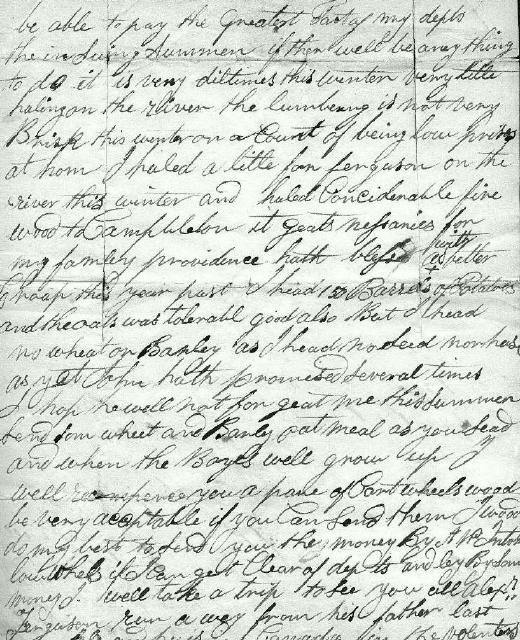 be able to pay the Greatest Part of my depts
the insuing Summer if ther well be aney thing
to do it is very diltimes this winter very litle
haling on the river the lumbering is not very
Brisk this winter on a Count of being low prises
at hom I haled a litle for ferguson on the
river this winter and haled Conciderable fire
wood to Campbleton it geats nessaries for
my famley providence hath blessd with
as better
Croap this year past I head 150 Barrels of Potatoes
and the oats was tolerabl good also But I head
no wheat or Barley as I head no seed nor has
as yet John hath promised several times
I hop he well not for geat me this summer
send som wheat and Barly oat meal as you sead
and when the Boyes well grow up I
well recompence you a pare of Cart wheels wood
be very acceptable if you Can send them I wood
do my best to send you the money By A Mc
low wheels if I can get Clear of depts and ley By som
money I well take a trip to see you all Alexr
Ferguson run a way from his father last